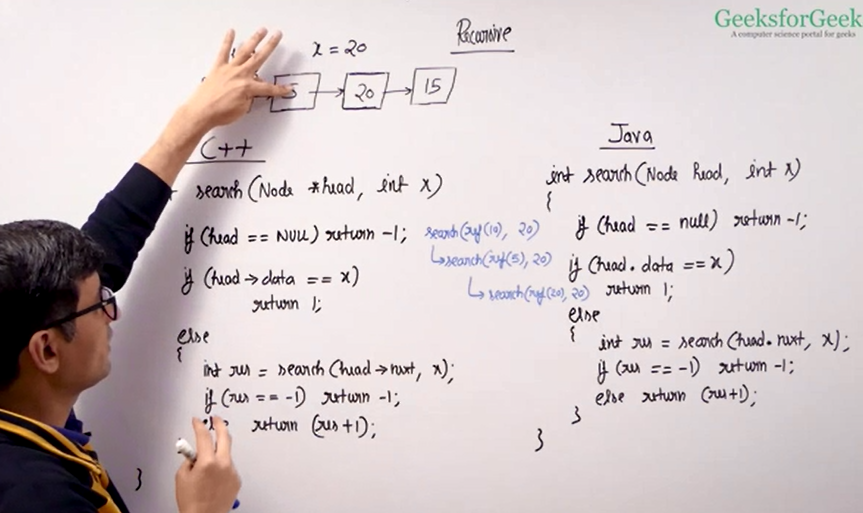 GeeksforGeek
A computer science portal for geeks
x = 20
Recursive
5 → 20 → 15
C++
search(Node *head, int x)
if (head == NULL) return -1;
if (head → data == x)
return 1;
else
{
int res = search(head → next, x);
if (res == -1) return -1;
return (res+1);
}
search(ref(10), 20)
↳search(ref(5), 20)
↳search(ref(20), 20)
Java
int search(Node head, int x)
{
if (head == null) return -1;
if (head.data == x)
return 1;
else
{
int res = search(head.next, x);
if (res == -1) return -1;
else return (res+1);
}
}